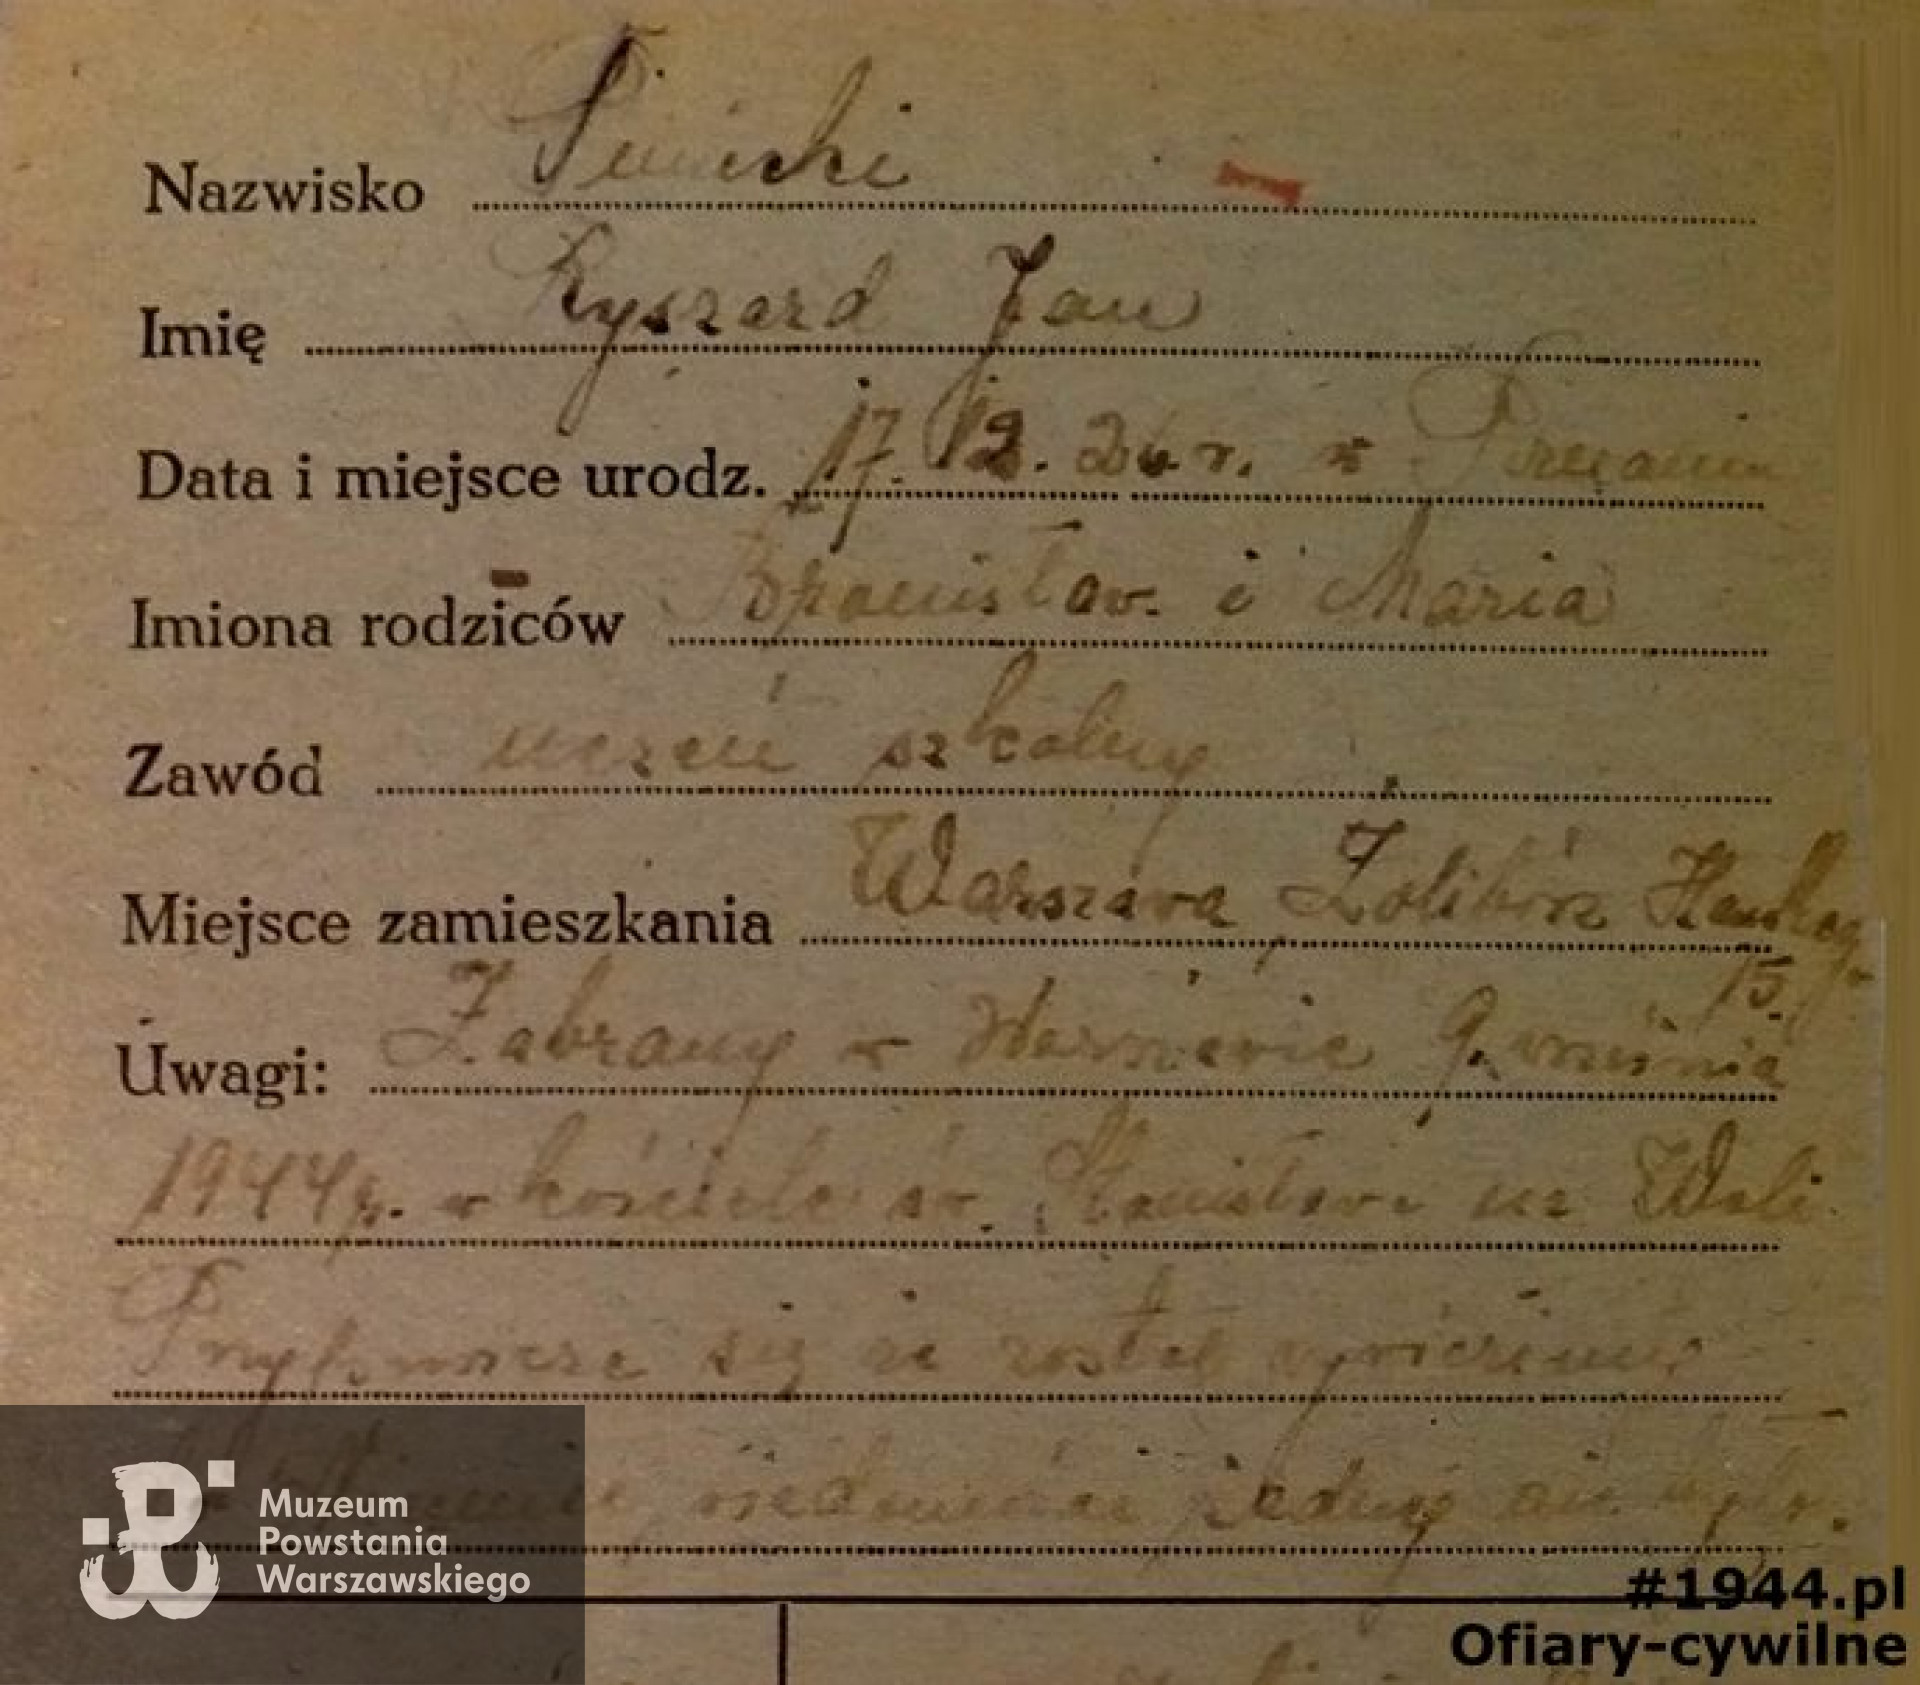 Nazwisko
Imię Ryszard Jan
Data i miejsce urodz. 17. 12. 26 r. w
Imiona rodziców Bronisław i Maria
Zawód uczeń szkolny
Miejsce zamieszkania Warszawa, Żoliborz
15.
Uwagi: Zabrany w 9. września
1944 r. w kościele św. Stanisława na Woli.
się że został wywieziony
Muzeum
Powstania
Warszawskiego
#1944.pl
Ofiary-cywilne